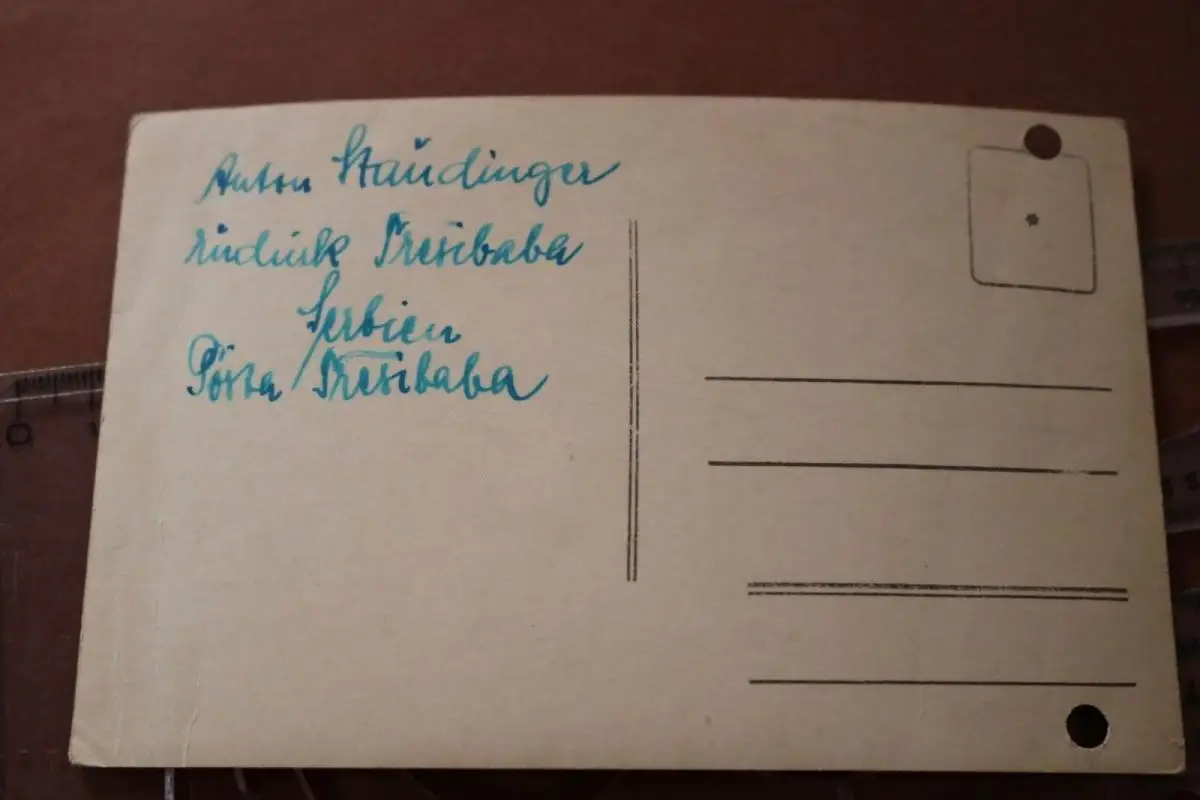 Anton Staudinger
rudnik Tresibaba
Serbien
Pošta Tresibaba
0